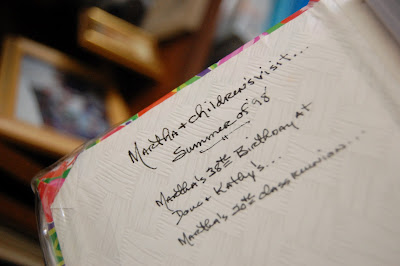 Martha + children's visit...
Summer of '98
Martha's 38th Birthday at
Doug + Kathy's...
Martha's 20th class reunion...